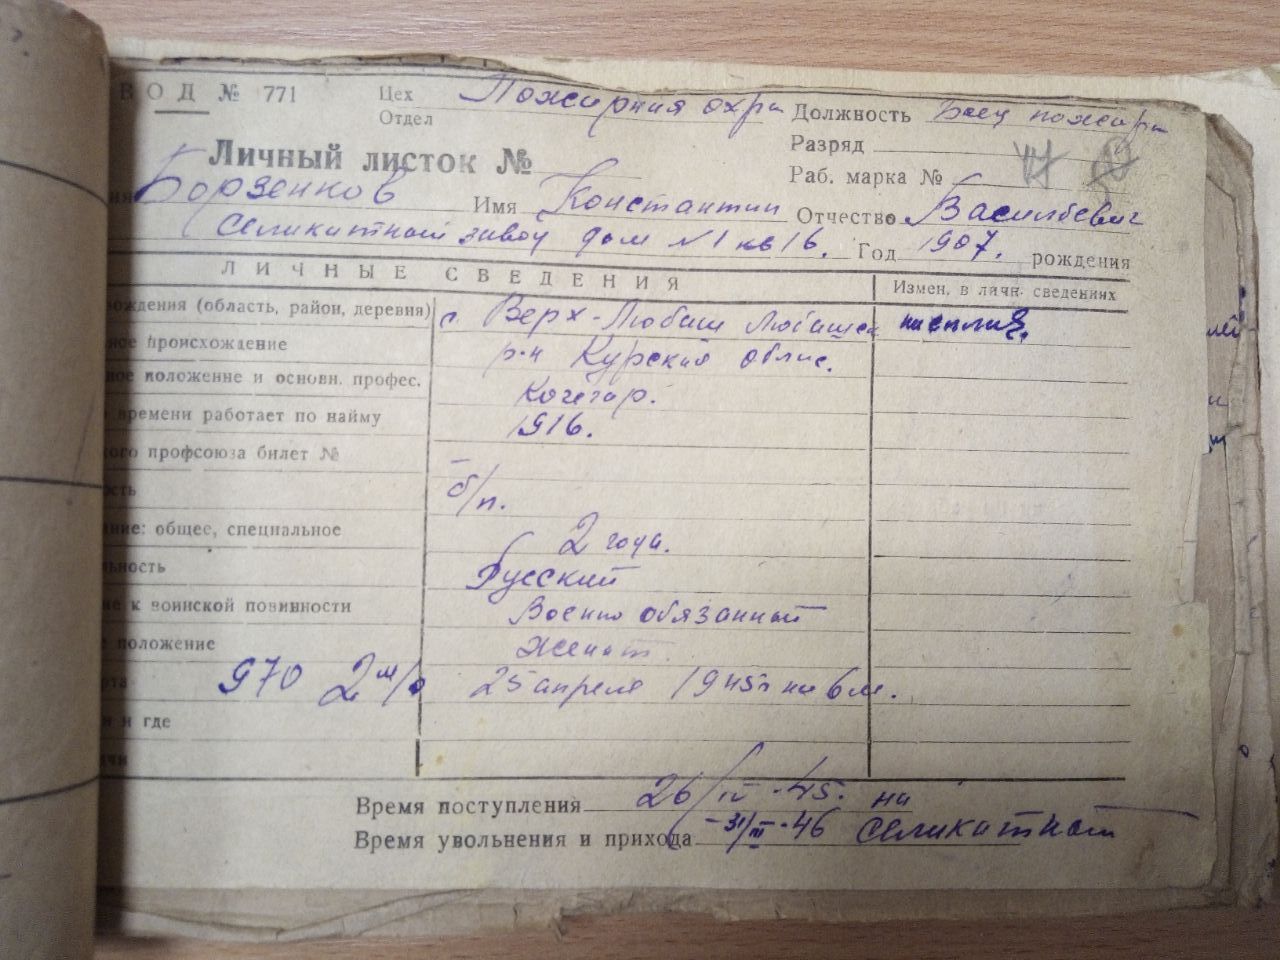 ВОД № 771 Цех Отдел Пожарная охра Должность Боец пожарн
Разряд
Личный листок № Раб. марка №
Борзенков Имя Константин Отчество Васильевич
Силикатный завод дом N1 кв 16. Год 1907. рождения
ЛИЧНЫЕ СВЕДЕНИЯ Измен. в личн. сведениях
рождения (область, район, деревня) с. Верх-Любаш Любашск
ное происхождение р-н Курский облас.
ное положение и основн. профес. Кочегар.
времени работает по найму 1916.
кого профсоюза билет №
ость б/п.
ние: общее, специальное 2 года.
льность Русский
ие к воинской повинности Военно обязанный
е положение Женат.
рта 970 25 апреля 1945г на 6 м.
и и где
ачи
Время поступления 26/IV-45. на
Время увольнения и прихода -31/III-46 Силикатном